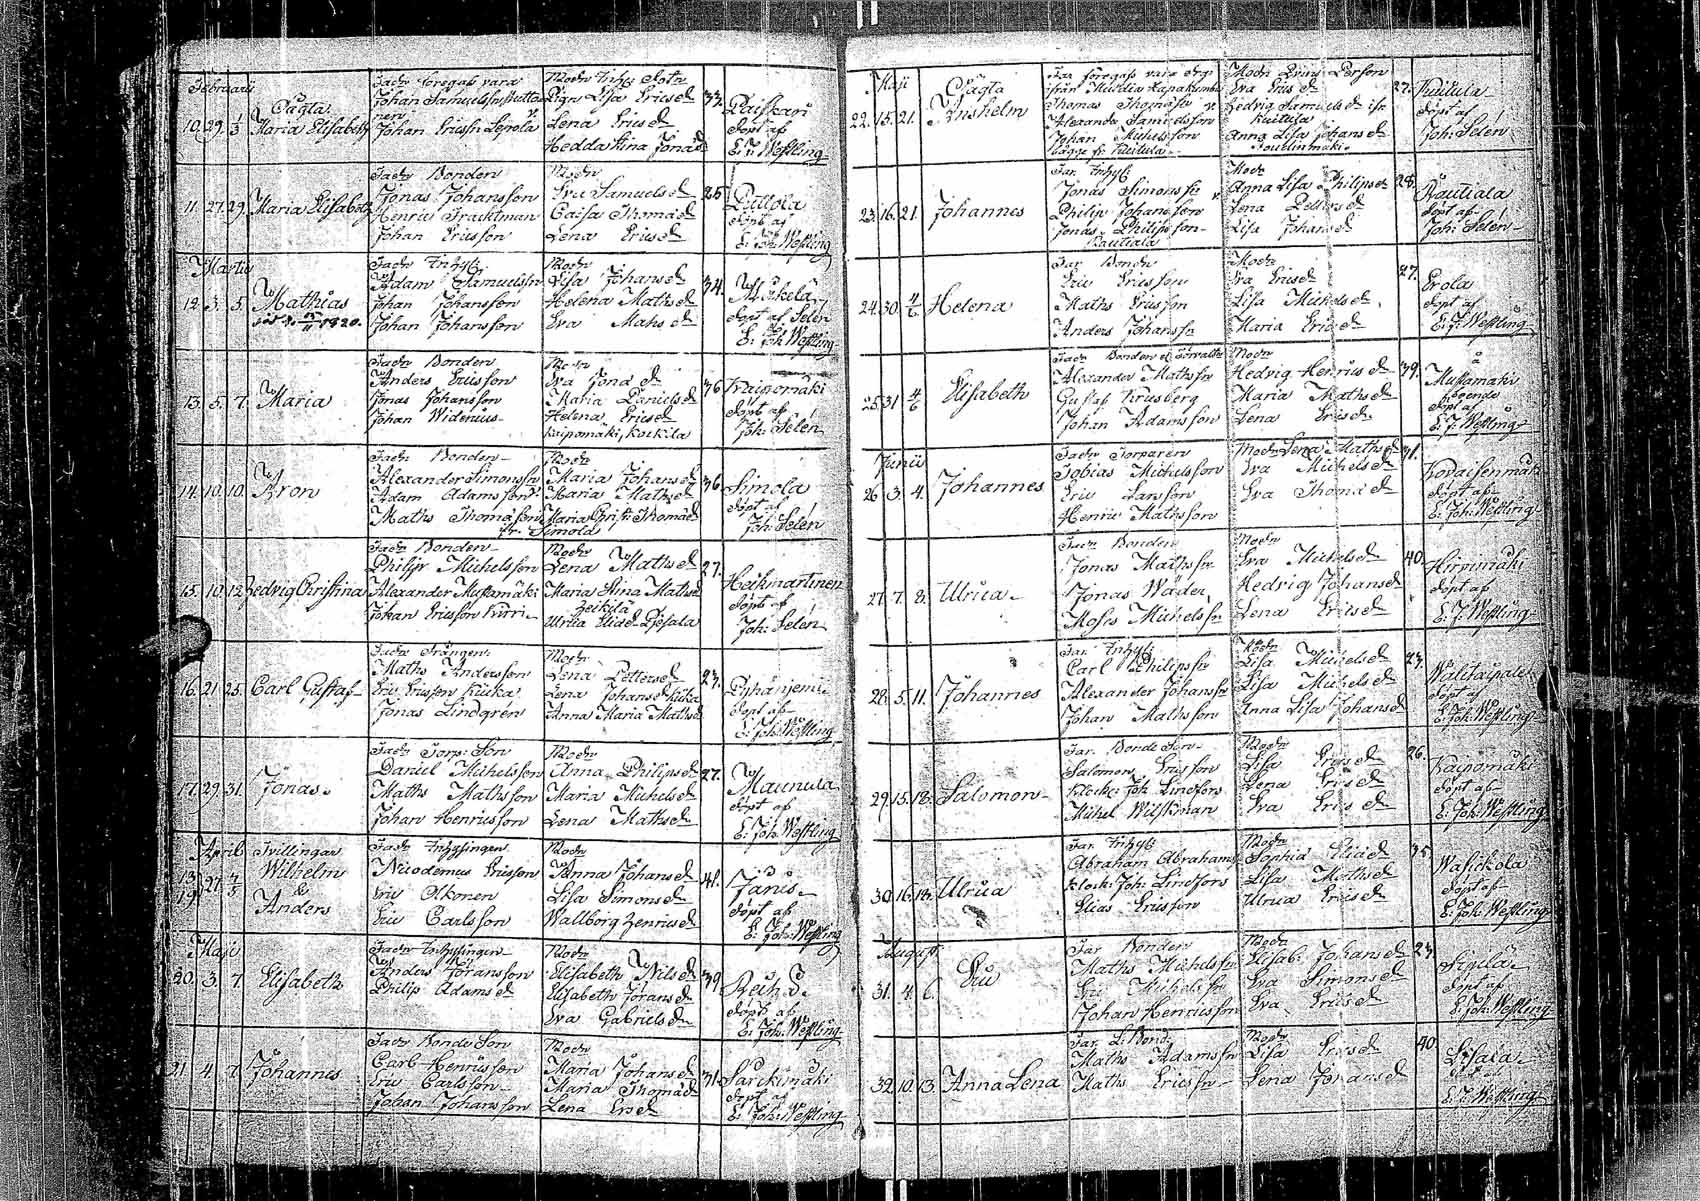 Februarii
Oägta
10. 29. 1/3 Maria Elisabeth
Johan Samuelsson
Johan Ericss: Lepola
Modr Inhys Dottr
Pigan Lisa Ericsd
Lena Ericsd
Hedda Stina Jonæd
33.
döpt af
E: J: Westling
11. 27. 29. Maria Elisabeth
Fadr Bonden
Jonas Johansson
Henric Tracktman
Johan Ericsson
Modr
Eva Samuelsd
Caisa Thomæd
Lena Ericsd
25
Pullola
döpt af
E: Joh: Westling
Martii
12. 3. 5. Mathias
1820.
Fadr Inhys:
Adam Samuelssn
Johan Johansson
Johan Johansson
Modr
Lisa Johansd
Helena Mathsd
Eva Mahsd
34.
Mikelä
döpt af Selén
E: Joh Westling
13. 5. 7. Maria
Fadr Bonden
Anders Ericsson
Jonas Johansson
Johan Widenius
Modr
Eva Jonæd
Maria Danielsd
Helena Ericsd
Kaipomäki, Koikila
36
Kaipomäki
döpt af
Joh: Selén
14. 10. 10. Aron
Fadr Bonden
Alexander Simonssn
Adam Adamsson
Maths Thomasson
fr. Simola
Modr
Maria Johansd
Maria Mathsd
Maria Christi: Thomæd
36
Simola
döpt af
Joh: Selén
15. 10. 12. Hedvig Christina
Fadr Bonden
Philip Michelsson
Alexander Mustamäki
Johan Ericsson Kurri
Modr
Lena Mathsd
Maria Stina Mathsd
Heikila
Ulrica
27.
Heikmartinen
döpt af
Joh: Selén
16. 21. 25. Carl Gustaf
Fadr Drängen:
Maths Andersson
Eric Ericsson Kiuka
Jonas Lindgrén
Modr
Lena Pettersd
Lena Johansd Kiuka
Anna Maria Mathsd
23.
Pyhänjemi
döpt af
E: Joh: Westling
17. 29. 31. Jonas.
Fadr Torp: Son
Daniel Michelsson
Maths Mathsson
Johan Henricsson
Modr
Anna Philipsd
Maria Michelsd
Lena Mathsd
27.
Maunula
döpt af
E: Joh: Westling
April
Tvillingar
18. 19. 27. 4/5 Wilhelm
&
Anders
Fadr Inhysingen
Nicodemus Ericsson
Eric Olkonen
Eric Carlsson
Modr
Anna Johansd
Lisa Simonsd
Wallborg Henricsd
41.
Janis
döpt af
E: Joh: Westling
Maji
20. 3. 7. Elisabeth
Fadr Inhysingen
Anders Joransson
Philip Adamsd
Modr
Elisabeth Nilsd
Elisabeth Joransd
Eva Gabrielsd
39
döpt af
E: Joh: Westling
21 4. 7. Johannes
Fadr Bonde Son
Carl Henricsson
Eric Carlsson
Johan Johansson
Modr
Maria Johansd
Maria Thomæd
Lena Ersd
31.
Särckimäki
döpt af
E: Joh: Westling
Maji
Oägta
22. 15. 21. Anshelm
Far föregafs vara drg:
Thomas Thomasson
Alexander Samuelsson
Johan Michelsson
bägge fr. Kuitula
Eva Ericsd
Hedvig Samuelsd
Kuitula
Anna Lisa Johansd
27.
Kuitula
döpt af
Joh: Selén
23. 16. 21. Johannes
Far Inhys
Jonas Simonssn
Philip Johansson
Jonas Philipsson
Rautiala
Modr
Anna Lisa Philipsd
Lena Pettersd
Lisa Johansd
28.
Rautiala
döpt af
Joh: Selén
24. 30. 4/6 Helena
Far Bondn
Eric Ericsson
Maths Ericsson
Anders Johanssn
Modr
Eva Ericsd
Lisa Michelsd
Maria Ericsd
27.
Erola
döpt af
E: J: Westling
25. 31 4/6 Elisabeth
Alexander Mathssn
Gustaf Krusberg
Johan Adamsson
Modr
Hedvig Henricsd
Maria Mathsd
Lena Ericsd
39.
Mustamäki
boende
döpt af
E: J: Westling
Junii
26 3. 4. Johannes
Fadr Torparen
Tobias Michelsson
Eric Larsson
Henric Mathsson
Modr Lena Mathsd
Eva Michelsd
Eva Thomæd
31.
döpt af
E: Joh: Westling
27. 7. 8. Ulrica
Fadr Bonden
Jonas Mathssn
Jonas Wäder
Moses Michelssn
Modr
Eva Michelsd
Hedvig Johansd
Lena Ericsd
40.
Hirvimäki
döpt af
E: J: Westling
28. 5. 11. Johannes
Far. Inhys
Carl Philipssn
Alexander Johanssn
Johan Mathsson
Modr
Lisa Michelsd
Lisa Michelsd
Anna Lisa Johansd
23.
Walithaipale
döpt af
E: Joh: Westling
29. 15. 18. Salomon
Far. Bonde Son
Salomon Ericsson
klock: Joh: Lindfors
Michel Wilskman
Modr
Lisa Ericsd
Lena Ericsd
Eva Ericsd
26.
Kaipomäki
döpt af
E: Joh: Westling
30. 16. 18. Ulrica
Far. Inhys
Abraham Abrahams
klock: Joh: Lindfors
Elias Ericsson
Modr
Sophia Ericsd
Lisa Mathsd
Ulrica Ericsd
35.
Wasickola
döpt af
E: Joh: Westling
August
31. 4. 6. Eric
Far Bonden
Maths Michelssn
Eric Michelssn
Johan Henricsson
Modr
Elisab: Johansd
Eva Simonsd
Eva Ericsd
23.
döpt af
E: Joh: Westling
32. 10. 13. Anna Lena
Far. L: Bond:
Maths Adamssn
Maths Ericssn
Modr
Lisa Ericsd
Lena Joransd
40
E: J: Westling